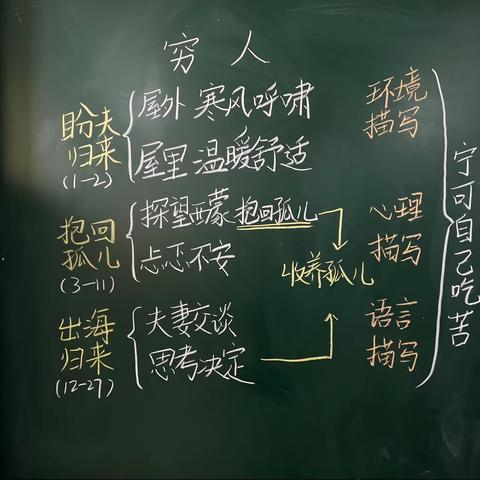 穷人
盼夫
归来
(1-2)
屋外 寒风呼啸
屋里 温暖舒适
环境
描写
抱回
孤儿
(3-11)
探望西蒙 抱回孤儿
忐忑不安
收养孤儿
心理
描写
出海
归来
(12-27)
夫妻交谈
思考决定
语言
描写
宁可自己吃苦